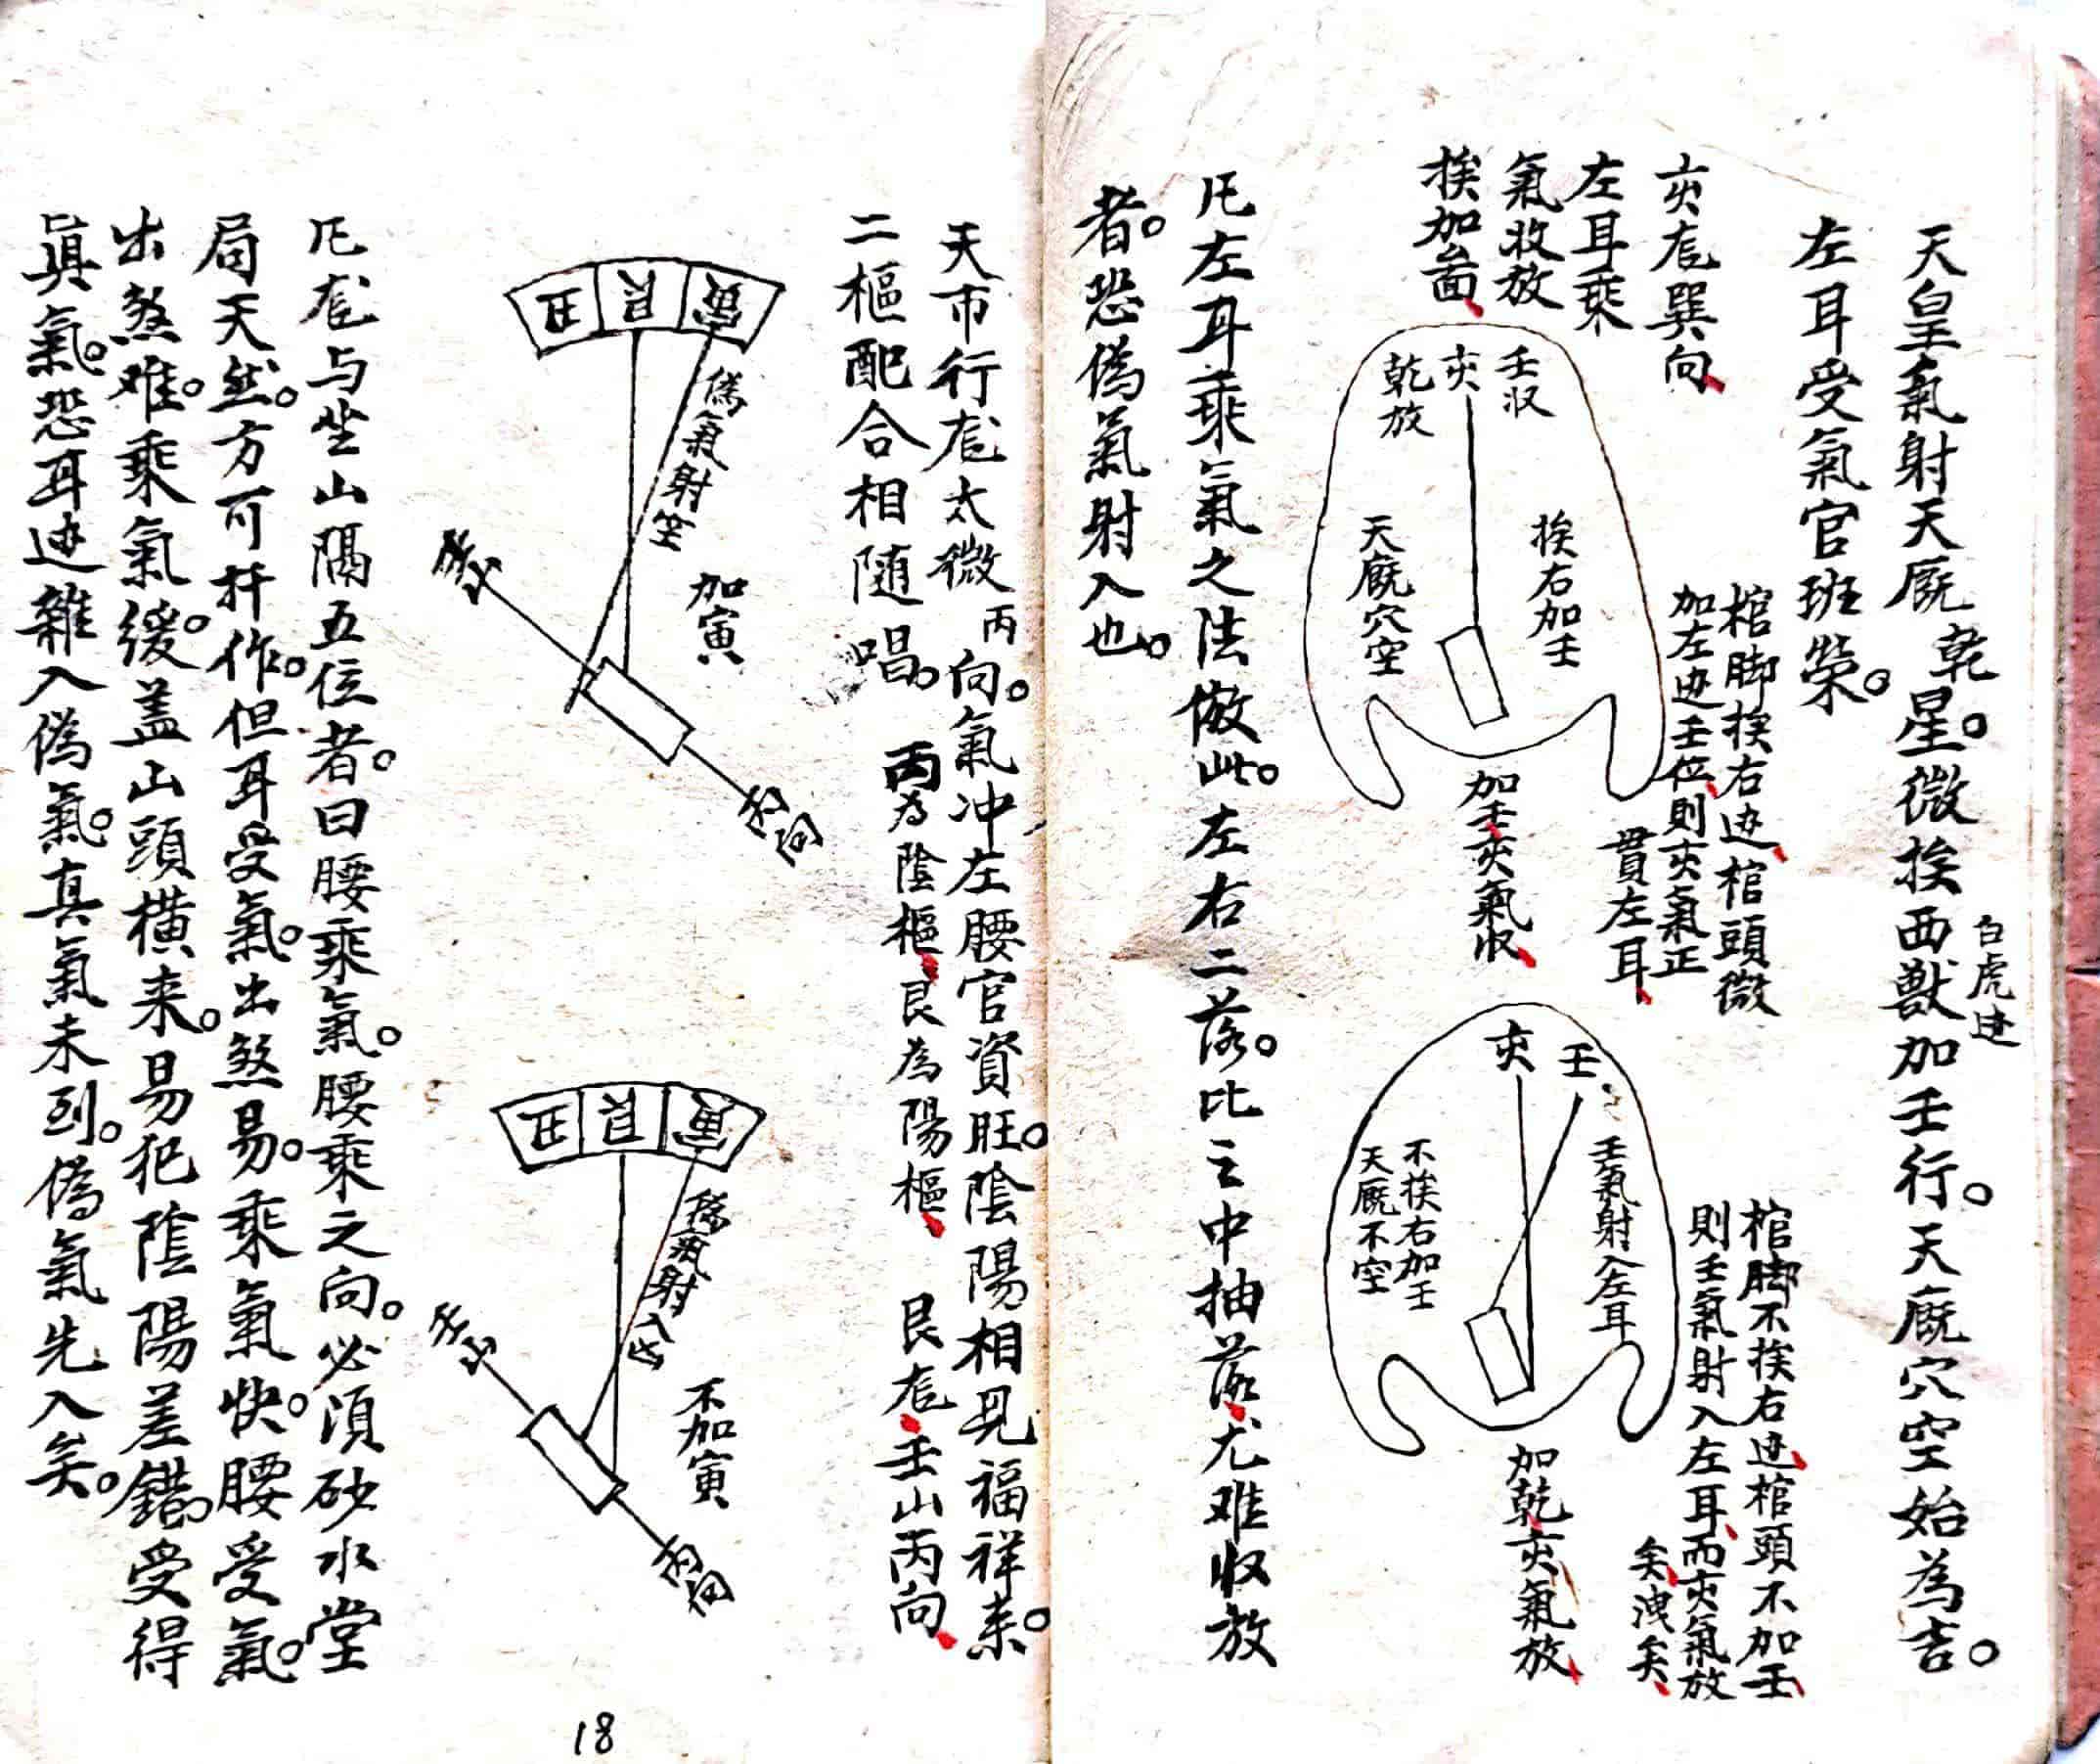 天皇氣射天厩乾星。微挨西獸加壬行。天厩穴空始為吉。
白虎边
左耳受氣官班榮。
亥龙巽向
左耳乘
氣收放
挨加畄
壬収
亥
乾放
挨右加壬
天厩穴空
加壬亥氣収
棺脚挨右边棺頭微
加左边壬位則亥氣正
貫左耳
壬
亥
壬氣射入左耳
不挨右加壬
天厩不空
加乾亥氣放
棺脚不挨右边棺頭不加壬
則壬氣射入左耳而亥氣放
矣洩矣
凡左耳乘氣之法倣此。左右二落。比之中抽落尤难収放
者。恐偽氣射入也。
天市行龙太微丙向。氣冲左腰官資旺。陰陽相見福祥来。
二樞配合相随唱。丙為陰樞艮為陽樞 艮龙壬山丙向
寅
艮
丑
偽氣射空
加寅
壬山
丙向
寅
艮
丑
偽氣射入
不加寅
壬山
丙向
凡龙与坐山隔五位者。曰腰乘氣。腰乘之向。必須砂水堂
局天然。方可扦作。但耳受氣。出煞易。乘氣快。腰受氣。
出煞难。乘氣缓。盖山頭横来。易犯陰陽差錯。受得
眞氣。恐耳边雜入偽氣。真氣未到。偽氣先入矣。
18